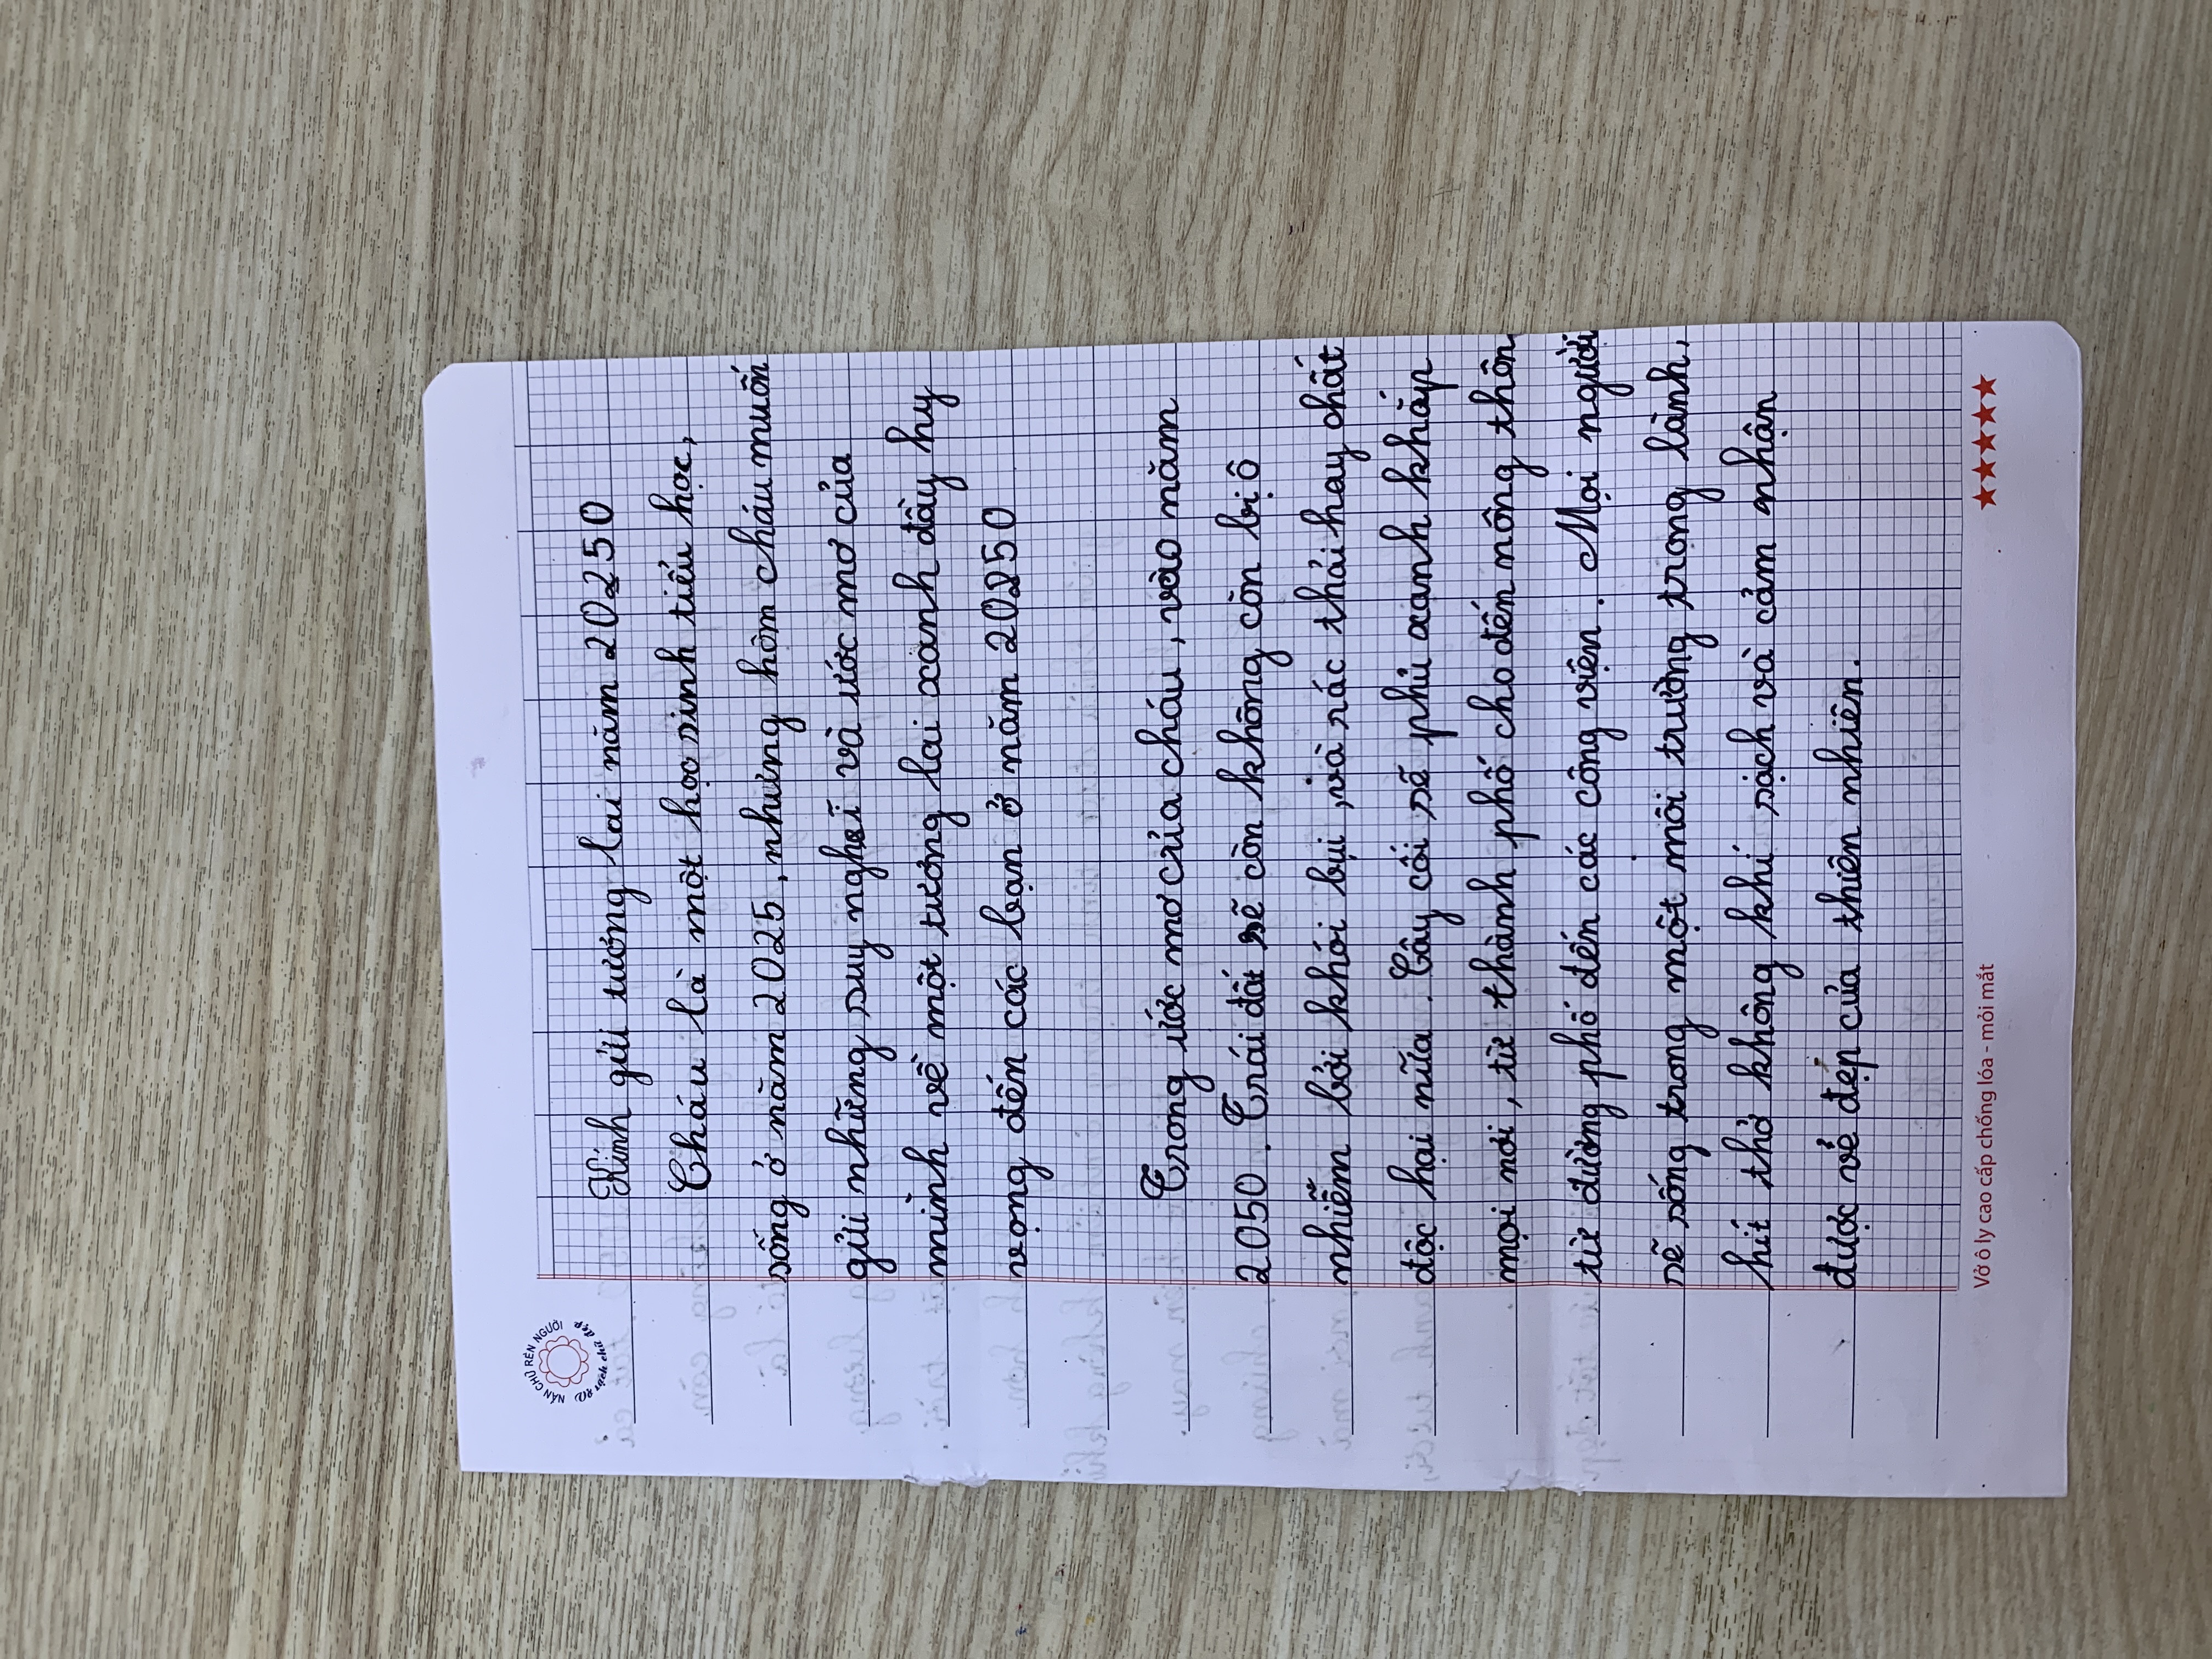 NẮN CHỮ RÈN NGƯỜI
Vở sạch chữ đẹp
Kính gửi tương lai năm 20250
Cháu là một học sinh tiểu học,
sống ở năm 2025, nhưng hôm cháu muốn
gửi những suy nghĩ và ước mơ của
mình về một tương lai xanh đầy hy
vọng đến các bạn ở năm 20250
Trong ước mơ của cháu, vào năm
2050. Trái đất sẽ còn không còn bị ô
nhiễm bởi khói bụi ,và rác thải hay chất
độc hại nữa. Cây cối sẽ phủ xanh khắp
mọi nơi, từ thành phố cho đến nông thôn
từ đường phố đến các công viên. Mọi người
sẽ sống trong một môi trường trong lành,
hít thở không khí sạch và cảm nhận
được vẻ đẹp của thiên nhiên.
Vở ô ly cao cấp chống lóa - mỏi mắt